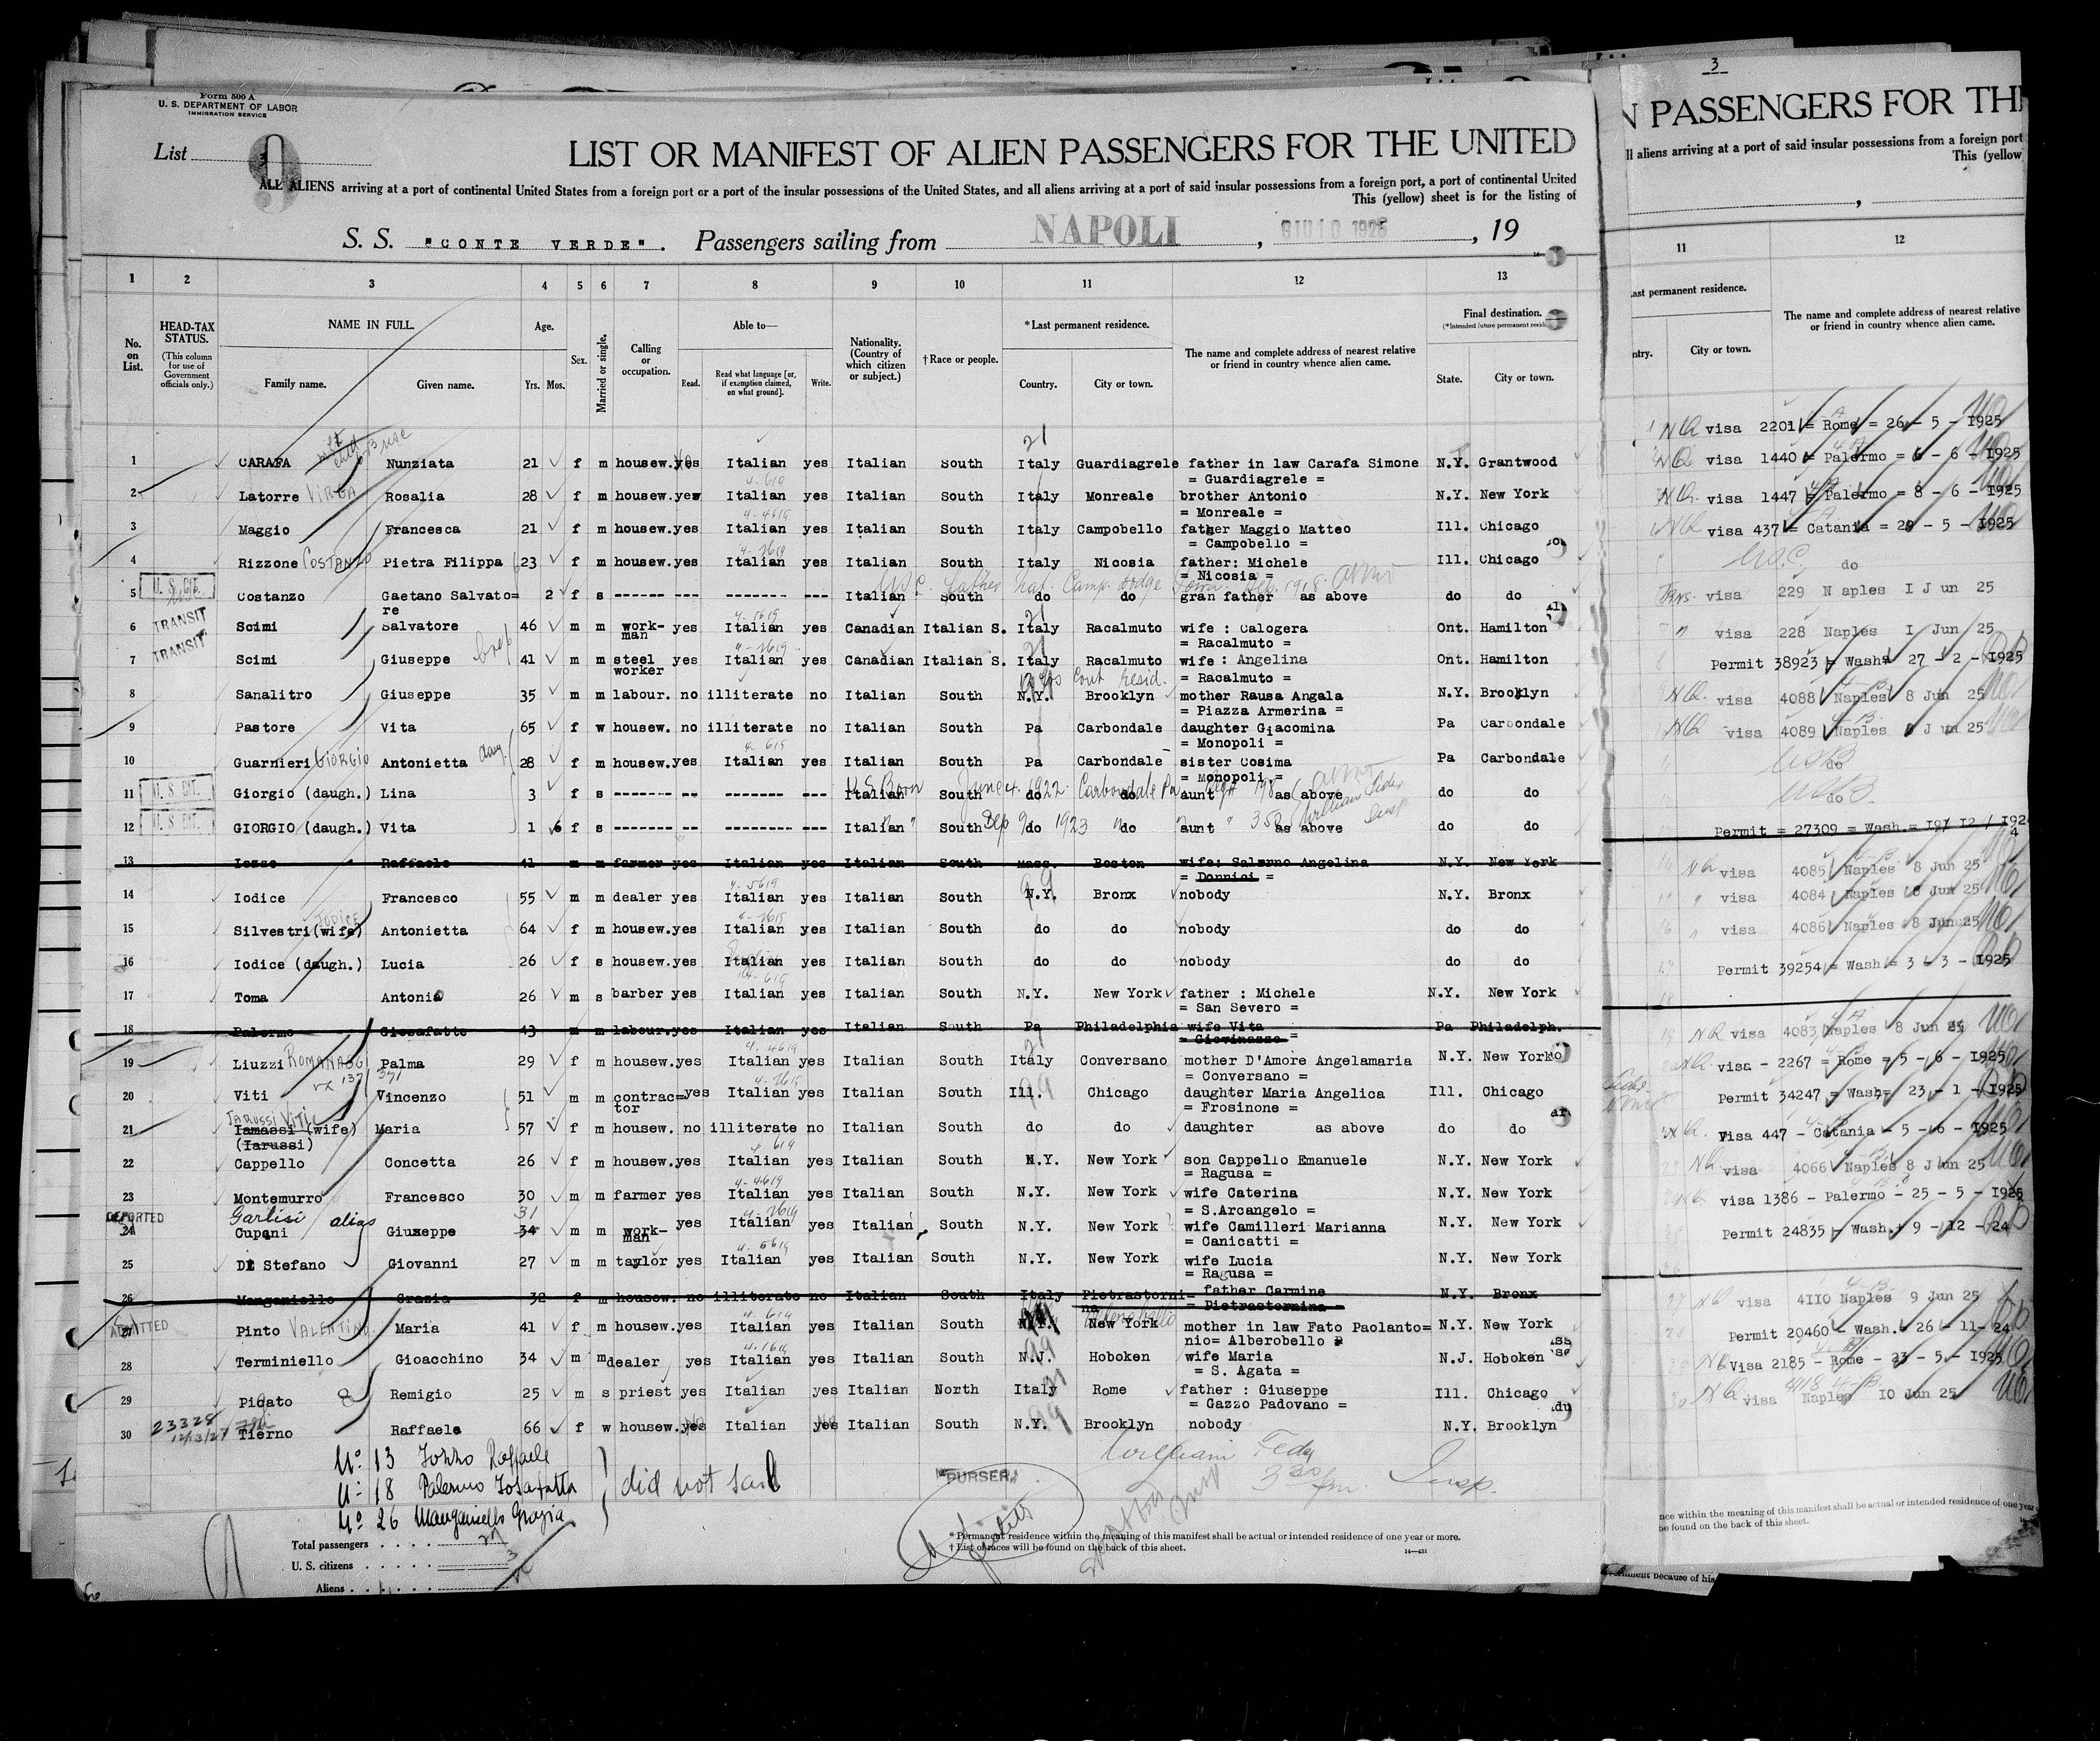 Form 500 A
U. S. DEPARTMENT OF LABOR
IMMIGRATION SERVICE
List 9
LIST OR MANIFEST OF ALIEN PASSENGERS FOR THE UNITED
ALL ALIENS arriving at a port of continental United States from a foreign port or a port of the insular possessions of the United States, and all aliens arriving at a port of said insular possessions from a foreign port, a port of continental United
This (yellow) sheet is for the listing of
S. S. "CONTE VERDE". Passengers sailing from NAPOLI, GIU 10 1925, 19
1 2 3 4 5 6 7 8 9 10 11 12 13
No. on List. HEAD-TAX STATUS. (This column for use of Government officials only.) NAME IN FULL. Family name. Given name. Age. Yrs. Mos. Sex. Married or single. Calling or occupation. Able to— Read. Read what language [or, if exemption claimed, on what ground]. Write. Nationality. (Country of which citizen or subject.) †Race or people. *Last permanent residence. Country. City or town. The name and complete address of nearest relative or friend in country whence alien came. Final destination. (*Intended future permanent resid State. City or town.
1 CARAFA Nunziata 21 f m housew. yes Italian yes Italian South Italy Guardiagrele father in law Carafa Simone N.Y. Grantwood
= Guardiagrele =
2 Latorre VIRGA Rosalia 28 f m housew. yes Italian yes Italian South Italy Monreale brother Antonio N.Y. New York
= Monreale =
3 Maggio Francesca 21 f m housew. yes Italian yes Italian South Italy Campobello father Maggio Matteo Ill. Chicago
= Campobello =
4 Rizzone COSTANZO Pietra Filippa 23 f m housew. yes Italian yes Italian South Italy Nicosia father: Michele Ill. Chicago
= Nicosia =
U. S. CIT.
5 Costanzo Gaetano Salvato= 2 f s ------ --- ------- --- Italian South do do gran father as above do do
re
6 TRANSIT Scimi Salvatore 46 m m work- yes Italian yes Canadian Italian S. Italy Racalmuto wife : Calogera Ont. Hamilton
man = Racalmuto =
7 TRANSIT Scimi Giuseppe 41 m m steel yes Italian yes Canadian Italian S. Italy Racalmuto wife : Angelina Ont. Hamilton
worker = Racalmuto =
8 Sanalitro Giuseppe 35 m m labour. no illiterate no Italian South N.Y. Brooklyn mother Rausa Angala N.Y. Brooklyn
= Piazza Armerina =
9 Pastore Vita 65 f w housew. no illiterate no Italian South Pa Carbondale daughter Giacomina Pa Carbondale
= Monopoli =
10 Guarnieri GIORGIO Antonietta 28 f m housew. yes Italian yes Italian South Pa Carbondale sister Cosima Pa Carbondale
= Monopoli =
U.S. Born June 4. 1922. Carbondale Pa
11 U. S. CIT. Giorgio (daugh.) Lina 3 f s ------- -- -------- --- Italian South do do aunt as above do do
12 U. S. CIT. GIORGIO (daugh.) Vita 1 6 f s ------- -- -------- --- Italian South Sep 9 1923 do do aunt as above do do
13 Iozzo Raffaele 41 m m farmer yes Italian yes Italian South Mass. Boston wife: Salerno Angelina N.Y. New York
= Donnici =
14 Iodice Francesco 55 m m dealer yes Italian yes Italian South N.Y. Bronx nobody N.Y. Bronx
JODICE
15 Silvestri (wife) Antonietta 64 f m housew. yes Italian yes Italian South do do nobody do do
16 Iodice (daugh.) Lucia 26 f s housew. yes Italian yes Italian South do do nobody do do
17 Toma Antonio 26 m s barber yes Italian yes Italian South N.Y. New York father : Michele N.Y. New York
= San Severo =
18 Palermo Giosafatto 43 m m labour. yes Italian yes Italian South Pa Philadelphia wife Vita Pa Philadelph.
= Giovinazzo =
19 Liuzzi ROMANAZZI Palma 29 f m housew. yes Italian yes Italian South Italy Conversano mother D'Amore Angelamaria N.Y. New York
= Conversano =
20 Viti Vincenzo 51 m m contrac= yes Italian yes Italian South Ill. Chicago daughter Maria Angelica Ill. Chicago
tor = Frosinone =
JARUSSI VITI
21 Iamassi (wife) Maria 57 f m housew. no illiterate no Italian South do do daughter as above do do
(Iarussi)
22 Cappello Concetta 26 f m housew. yes Italian yes Italian South N.Y. New York son Cappello Emanuele N.Y. New York
= Ragusa =
23 Montemurro Francesco 30 m m farmer yes Italian yes Italian South N.Y. New York wife Caterina N.Y. New York
= S.Arcangelo =
DEPORTED Garlisi alias 31
24 Cupani Giuseppe 34 m m work- yes Italian yes Italian South N.Y. New York wife Camilleri Marianna N.Y. New York
man = Canicatti =
25 Di Stefano Giovanni 27 m m taylor yes Italian yes Italian South N.Y. New York wife Lucia N.Y. New York
= Ragusa =
26 Manganiello Grazia 32 f m housew. no illiterate no Italian South Italy Pietrastorni- father Carmine N.Y. Bronx
na = Pietrastornina =
27 ADMITTED Pinto VALENTINO Maria 41 f m housew. yes Italian yes Italian South N.Y. New York mother in law Fato Paolanto= N.Y. New York
nio= Alberobello =
28 Terminiello Gioacchino 34 m m dealer yes Italian yes Italian South N.J. Hoboken wife Maria N.J. Hoboken
= S. Agata =
29 Picato Remigio 25 m s priest yes Italian yes Italian North Italy Rome father : Giuseppe Ill. Chicago
= Gazzo Padovano =
30 23328 12/13/27 Tierno Raffaela 66 f w housew. yes Italian yes Italian South N.Y. Brooklyn nobody N.Y. Brooklyn
Nº 13 Iozzo Raffaele
Nº 18 Palermo Iosafatta
Nº 26 Manganiello Grazia
did not sail
"PURSER"
Total passengers . . . . . 27
U. S. citizens . . . . . 3
Aliens . . . . .
* Permanent residence within the meaning of this manifest shall be actual or intended residence of one year or more.
† List of races will be found on the back of this sheet.
3
N PASSENGERS FOR TH
ll aliens arriving at a port of said insular possessions from a foreign port
This (yellow
11 12
ast permanent residence.
The name and complete address of nearest relative
or friend in country whence alien came.
ntry. City or town.
visa 2201 = Rome = 26 - 5 - 1925
visa 1440 = Palermo = 6 - 6 - 1925
visa 1447 = Palermo = 8 - 6 - 1925
visa 437 = Catania = 29 - 5 - 1925
do
visa 229 Naples I Jun 25
visa 228 Naples I Jun 25
Permit 38923 = Wash= 27 - 2 - 1925
visa 4088 Naples 8 Jun 25
visa 4089 Naples 8 Jun 25
do
do
Permit = 27309 = Wash.= 19/ 12 / 1924
visa 4085 Naples 8 Jun 25
visa 4084 Naples 8 Jun 25
visa 4086 Naples 8 Jun 25
Permit 39254 = Wash = 3 - 3 - 1925
visa 4083 Naples 8 Jun 25
visa - 2267 = Rome = 5 - 6 - 1925
Permit 34247 = Wash= 23 - 1 - 1925
Visa 447 - Catania - 5 - 6 - 1925
visa 4066 Naples 8 Jun 25
visa 1386 - Palermo - 25 - 5 - 1925
Permit 24835 - Wash. - 9 - 12 - 24
visa 4110 Naples 9 Jun 25
Permit 20460 - Wash. - 26 - 11- 24
Visa 2185 - Rome - 23 - 5 - 1925
visa 4118 Naples 10 Jun 25
nce within the meaning of this manifest shall be actual or intended residence of one year
be found on the back of this sheet.